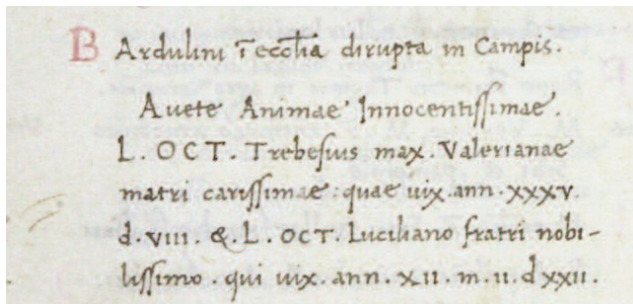 BArdulini ī eccl̄ia dirupta in Campis.
Avete Animae Innocentissimae.
L. OCT. Trebesius max. Valerianae
matri carissimae. quae uix. ann. XXXV.
d. VIII. &. L. OCT. Luciliano fratri nobi-
lissimo. qui uix. ann. XII. m. II. d XXII.